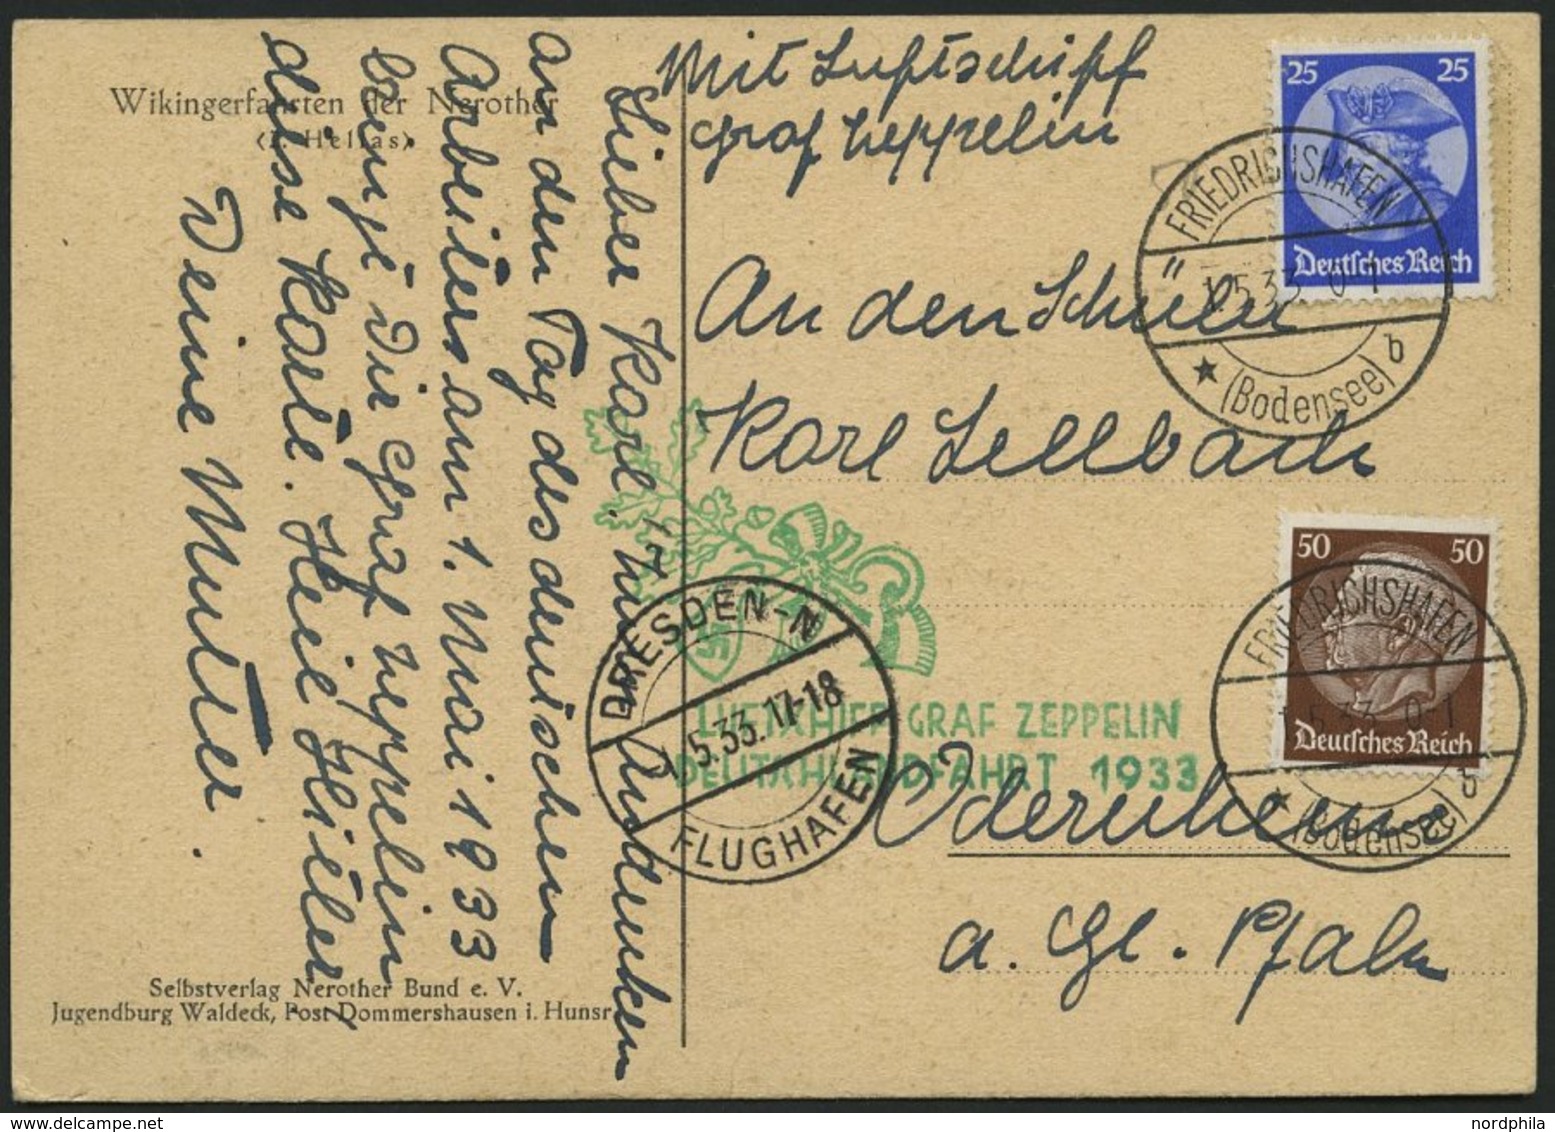 Wikingerfahrten der Nerother
(2. Hellas)
Lieber Karl. Zum Andenken
an den Tag des deutschen
Arbeiters am 1. Mai 1933
bringt Dir Graf Zeppelin
diese Karte. Heil Hitler
Deine Mutter.
Selbstverlag Nerother Bund e. V.
Jugendburg Waldeck, Post Dommershausen i. Hunsr.
Mit Luftschiff
Graf Zeppelin
An den Schüler
Karl Sellbach
Odernheim
a. Gl. Pfalz
25 25
Deutsches Reich
FRIEDRICHSHAFEN
1.5.33. 0-1
(Bodensee) b
50 50
Deutsches Reich
FRIEDRICHSHAFEN
1.5.33. 0-1
(Bodensee) b
DRESDEN-N
1.5.33.17-18
FLUGHAFEN
LUFTSCHIFF GRAF ZEPPELIN
DEUTSCHLANDFAHRT 1933
nordphila